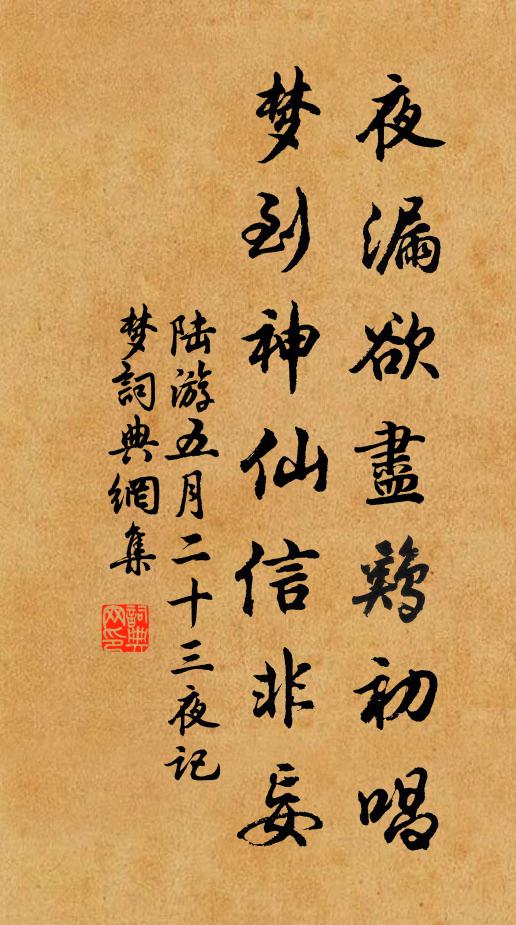 夜漏欲盡鷄初唱
梦到神仙信非妄
陆游五月二十三夜记
梦詞典網集
詞典网印